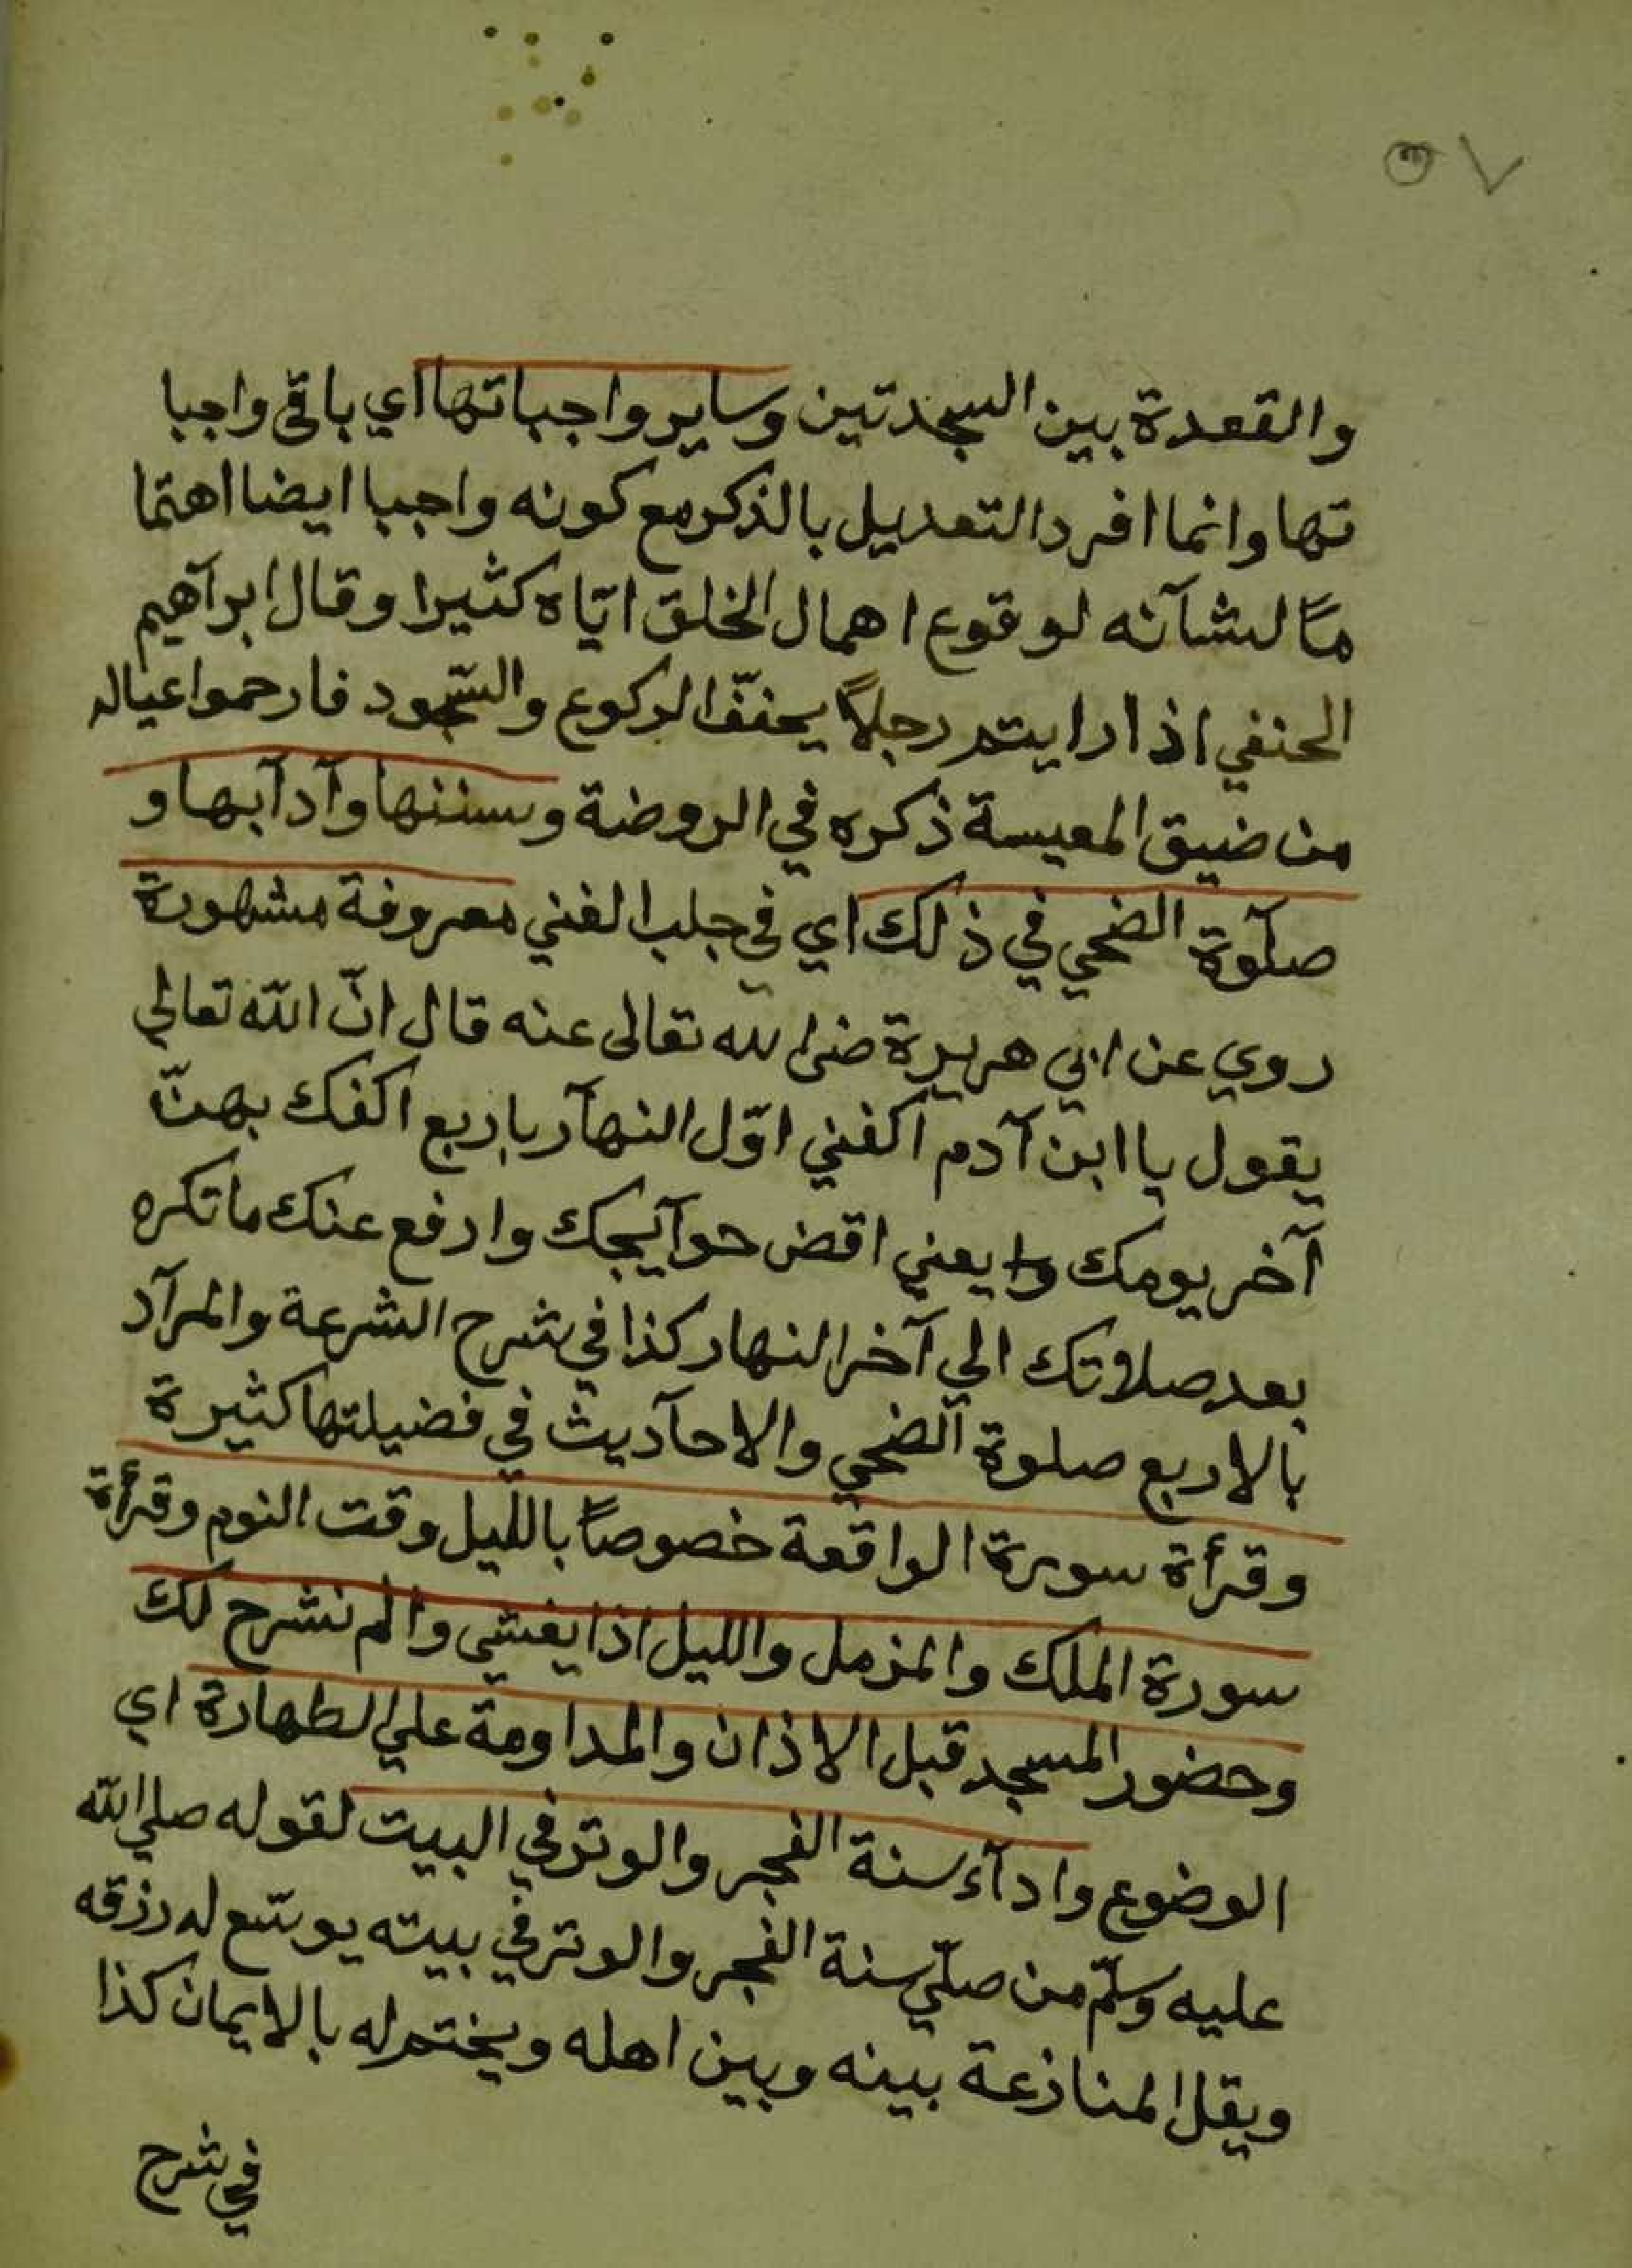 ٥٧
والقعدة بين السجدتين وساير واجباتها اي باقي واجبا
تها وانما افرد التعديل بالذكر مع كونه واجبا ايضا اهتما
مًا لشآنه لوقوع اهمال الخلق ايّاه كثيرا وقال ابرآهيم
الحنفي اذا رايتم رجلًا يخفّف الركوع والسّجود فارحموا عياله
من ضيق المعيسة ذكره في الروضة وسننها وآدآبها و
صلٓوة الضحي في ذلك اي في جلب الغني معروفة مشهورة
روي عن ابي هريرة رضى الله تعالى عنه قال انّ اللّه تعالي
يقول يا ابن آدم اكفني اوّل النهآر باربع اكفك بهنّ
آخر يومك يعني اقض حوآيجك وادفع عنك ما تكره
بعد صلاتك الي آخر النهار كذا في شرح الشرعة والمرآد
بالاربع صلوة الضحي والاحآديث في فضيلتها كثيرة
وقرأة سورة الواقعة خصوصاً باللّيل وقت النوم وقرأة
سورة الملك والمزمل والليل اذا يغشي والم نشرح لك
وحضور المسجد قبل الاذان والمداومة علي الطهارة اي
الوضوع وادآء سنة الفجر والوتر في البيت لقوله صلي اللّه
عليه وسلّم من صلّي سنة الفجر والوتر في بيته يوسّع له رزقه
ويقل المنازعة بينه وبين اهله ويختم له بالايمان كذا
في شرح